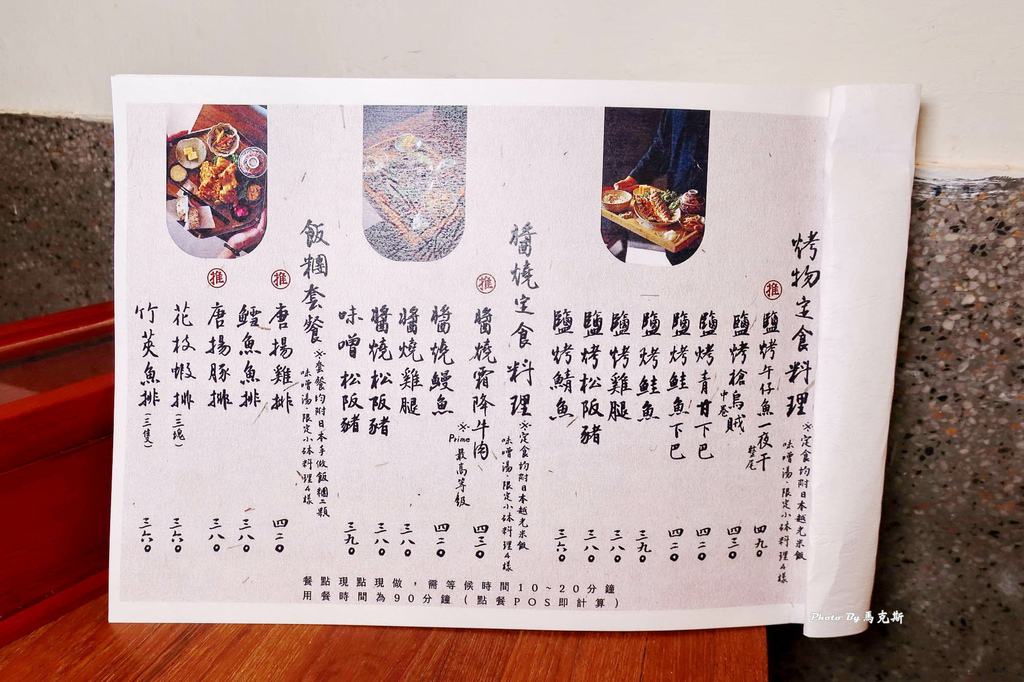 烤物定食料理
※定食均附日本越光米飯
味噌湯、限定小缽料理4樣
推
鹽烤午仔魚一夜干
整尾
四九〇
鹽烤槍烏賊
中卷
四三〇
鹽烤青甘下巴
四二〇
鹽烤鮭魚下巴
四二〇
鹽烤鮭魚
三九〇
鹽烤雞腿
三八〇
鹽烤松阪豬
三八〇
鹽烤鯖魚
三六〇
醬燒定食料理
※定食均附日本越光米飯
味噌湯、限定小缽料理4樣
推
醬燒霜降牛肉
※Prime最高等級
四三〇
醬燒鰻魚
四二〇
醬燒雞腿
三八〇
醬燒松阪豬
三八〇
味噌松阪豬
三九〇
飯糰套餐
※套餐均附日本手做飯糰二顆
味噌湯、限定小缽料理4樣
推
唐揚雞排
四二〇
鱈魚魚排
三八〇
推
唐揚豚排
三八〇
花枝蝦排(三塊)
三六〇
竹莢魚排(三隻)
三六〇
餐點現點現做，需等候時間10~20分鐘
用餐時間為90分鐘(點餐POS即計算)
Photo By 馬克斯